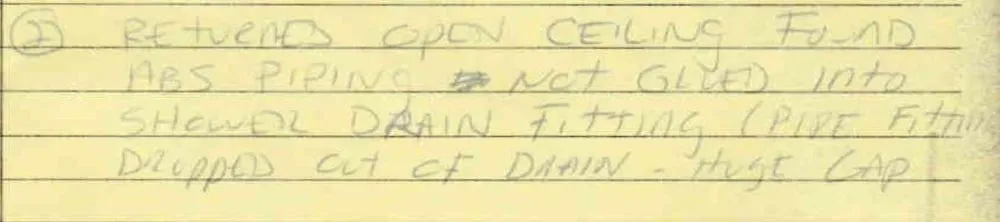 ② RETURNED OPEN CEILING FOUND
ABS PIPING NOT GLUED INTO
SHOWER DRAIN FITTING (PIPE FITTING
DROPPED OUT OF DRAIN - HUGE GAP